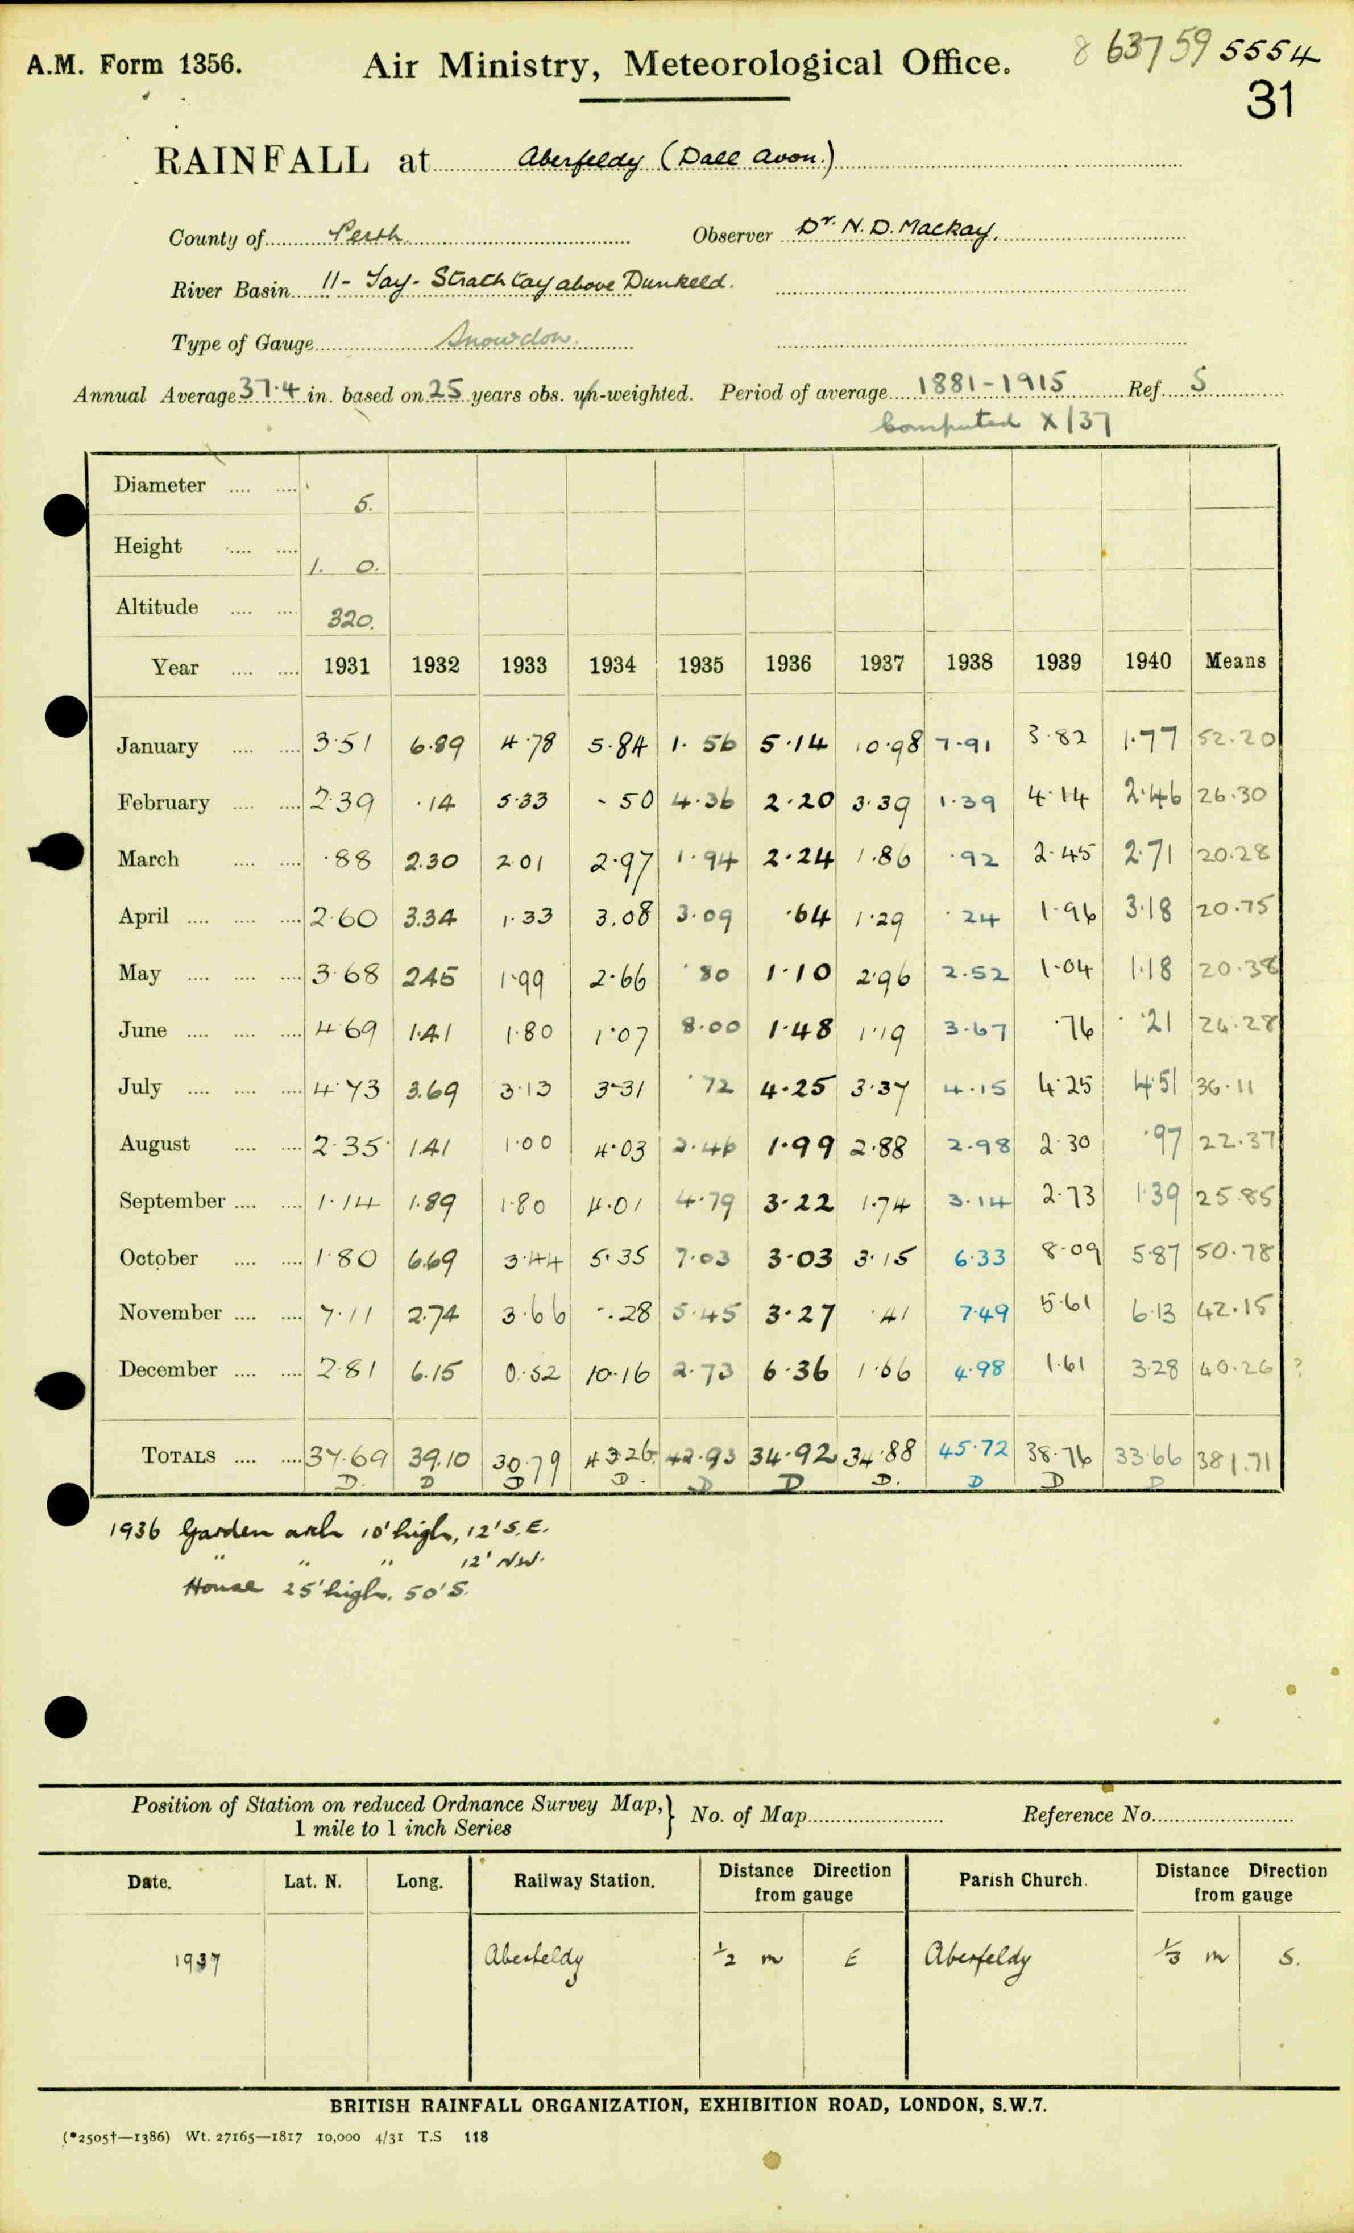 A.M. Form 1356. Air Ministry, Meteorological Office. 8 63759 5554
31
RAINFALL at Aberfeldy (Dall Avon.)
County of Perth Observer Dr. N.D. Mackay.
River Basin 11- Tay- Strath tay above Dunkeld.
Type of Gauge Snowdon.
Annual Average 37.4 in. based on 25 years obs. un-weighted. Period of average 1881-1915 Ref. S
Computed X/37
Diameter .... .... 5.
Height .... .... 1. 0.
Altitude .... .... 320.
Year .... .... 1931 1932 1933 1934 1935 1936 1937 1938 1939 1940 Means
January .... .... 3.51 6.89 4.78 5.84 1.56 5.14 10.98 7.91 3.82 1.77 52.20
February .... .... 2.39 .14 5.33 .50 4.36 2.20 3.39 1.39 4.14 2.46 26.30
March .... .... .88 2.30 2.01 2.97 1.94 2.24 1.86 .92 2.45 2.71 20.28
April .... .... .... 2.60 3.34 1.33 3.08 3.09 .64 1.29 .24 1.96 3.18 20.75
May .... .... .... 3.68 2.45 1.99 2.66 .80 1.10 2.96 2.52 1.04 1.18 20.38
June .... .... .... 4.69 1.41 1.80 1.07 8.00 1.48 1.19 3.67 .76 .21 24.28
July .... .... .... 4.73 3.69 3.13 3.31 .72 4.25 3.37 4.15 4.25 4.51 36.11
August .... .... 2.35 1.41 1.00 4.03 2.46 1.99 2.88 2.98 2.30 .97 22.37
September .... .... 1.14 1.89 1.80 4.01 4.79 3.22 1.74 3.14 2.73 1.39 25.85
October .... .... 1.80 6.69 3.44 5.35 7.03 3.03 3.15 6.33 8.09 5.87 50.78
November .... .... 7.11 2.74 3.66 .28 5.45 3.27 .41 7.49 5.61 6.13 42.15
December .... .... 2.81 6.15 0.52 10.16 2.73 6.36 1.66 4.98 1.61 3.28 40.26 ?
TOTALS .... .... 37.69 39.10 30.79 43.26 42.93 34.92 34.88 45.72 38.76 33.66 381.71
D. D D D. D D D. D D D
1936 Garden arch 10' high, 12' S.E.
" " " 12' NW.
House 25' high. 50' S.
Position of Station on reduced Ordnance Survey Map,} No. of Map Reference No.
1 mile to 1 inch Series
Date. Lat. N. Long. Railway Station. Distance Direction from gauge Parish Church. Distance Direction from gauge
1937 Aberfeldy 1/2 m E Aberfeldy 1/3 m S.
BRITISH RAINFALL ORGANIZATION, EXHIBITION ROAD, LONDON, S.W.7.
(*2505†—1386) Wt. 27165—1817 10,000 4/31 T.S 118